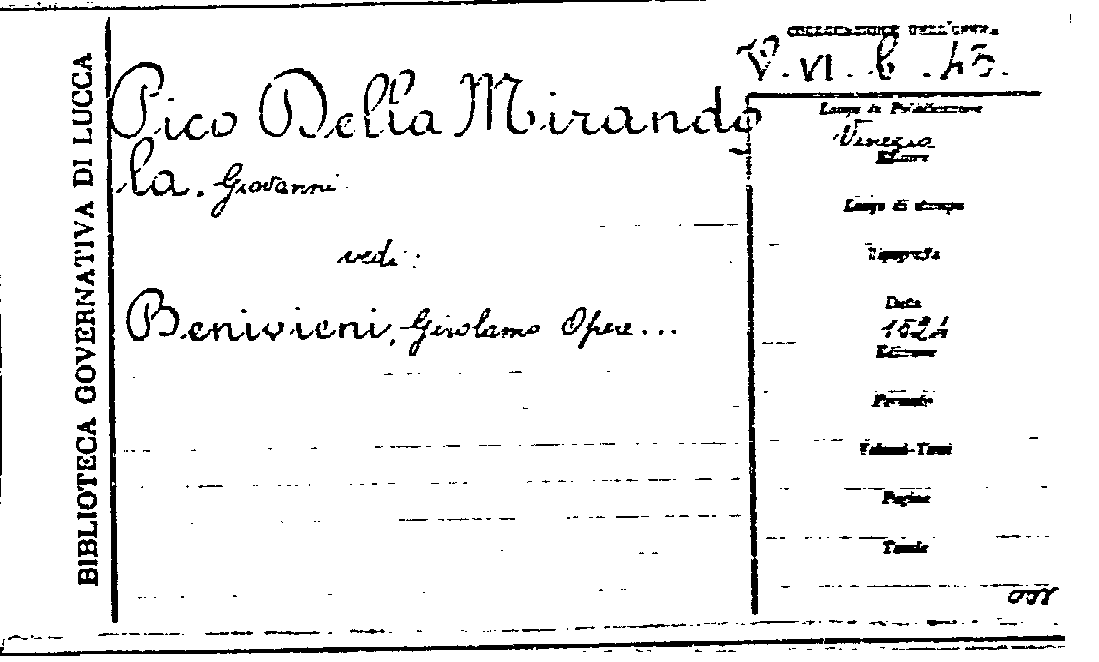 BIBLIOTECA GOVERNATIVA DI LUCCA
COLLOCAZIONE DELL'OPERA
V. VI. b. 45.
Pico Della Mirando
la. Giovanni
vedi:
Benivieni, Girolamo Opere...
Luogo di Pubblicazione
Venezia
Editore
Luogo di stampa
Tipografia
Data
1524
Edizione
Formato
Volumi-Tomi
Pagine
Tavole